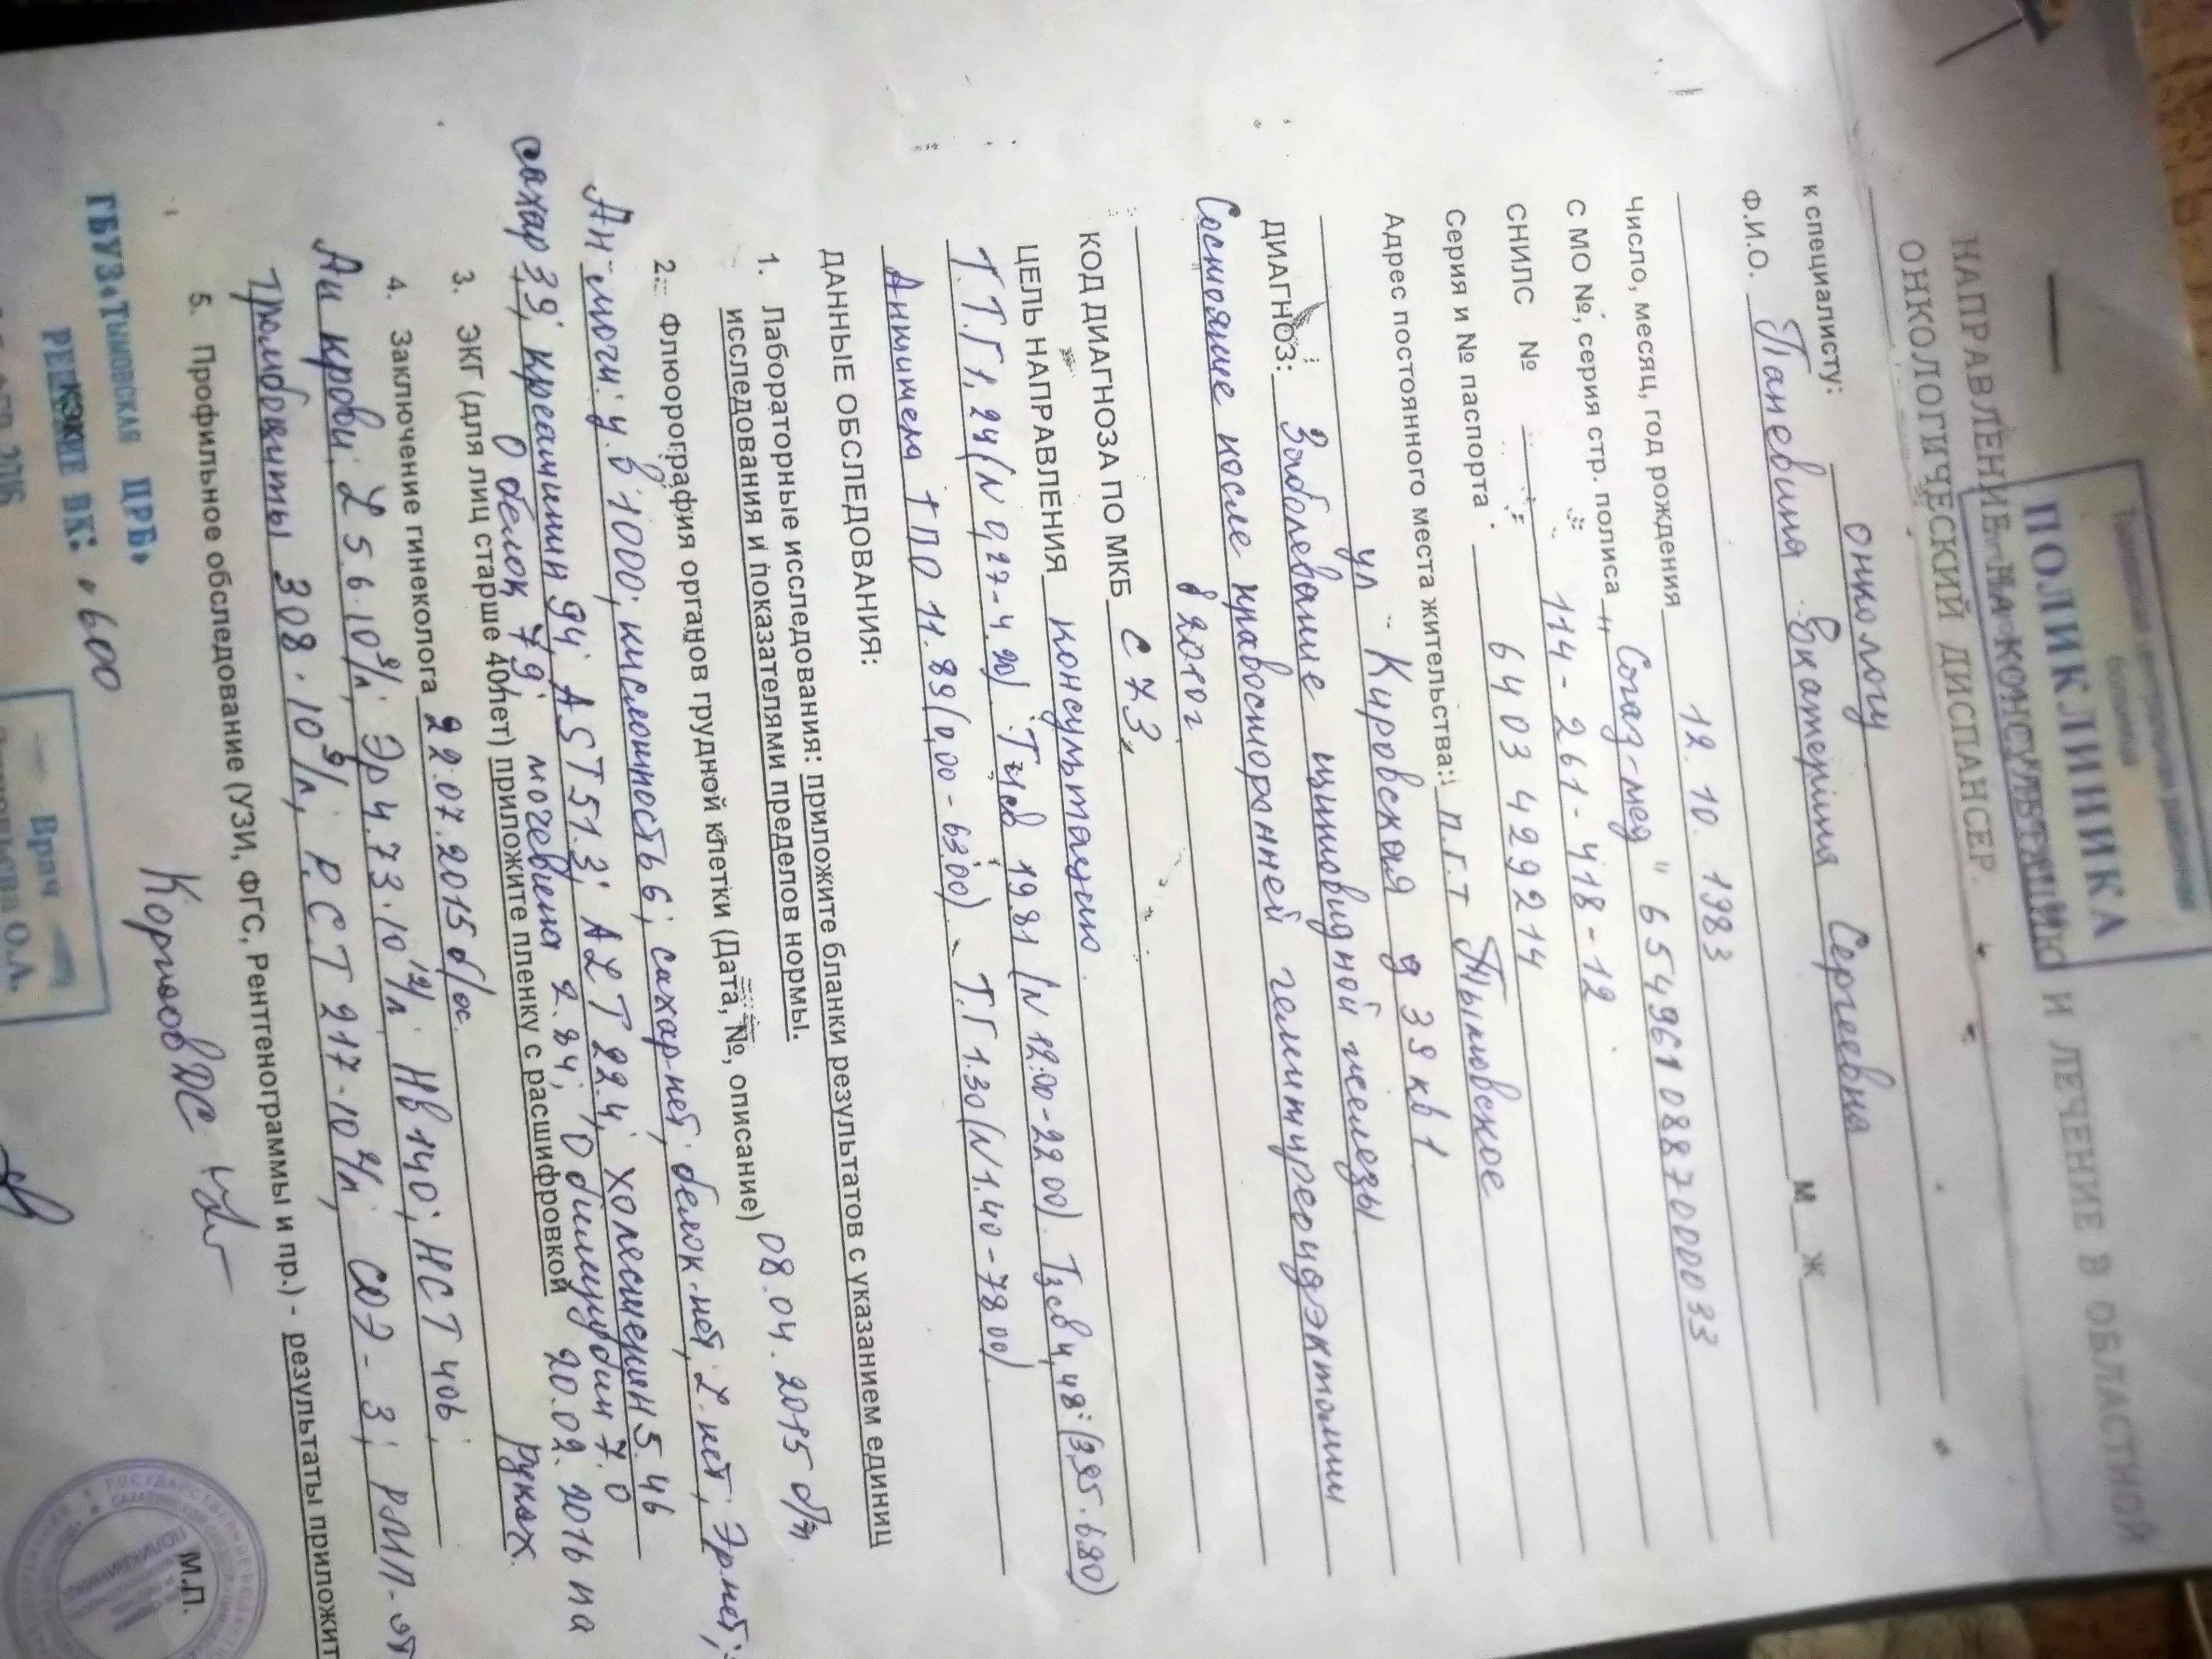 ПОЛИКЛИНИКА
НАПРАВЛЕНИЕ НА КОНСУЛЬТАЦИЮ И ЛЕЧЕНИЕ В ОБЛАСТНОЙ
ОНКОЛОГИЧЕСКИЙ ДИСПАНСЕР.
к специалисту: онкологу
Ф.И.О. Паневина Екатерина Сергеевна
М Ж
Число, месяц, год рождения 12.10.1983
С МО №, серия стр. полиса „Согаз-мед" 6549610887000033
СНИЛС № 114-261-418-12
Серия и № паспорта 6403 429214
Адрес постоянного места жительства: п.г.т Тымовское
ул Кировская д 39 кв 1
ДИАГНОЗ: Заболевание щитовидной железы
Состояние после правосторонней гемитиреоидэктомии
в 2010г.
КОД ДИАГНОЗА ПО МКБ С 73.
ЦЕЛЬ НАПРАВЛЕНИЯ консультацию.
Т.Т.Г 1,24 (N 0,27-4.20) Т4св 19.81 (N 12.00-22.00). Т3св 4,48 (3,95.-6.80)
Антитела ТПО 11.89 (0,00-63.00). Т.Г 1.30 (N 1.40-78.00)
ДАННЫЕ ОБСЛЕДОВАНИЯ:
1. Лабораторные исследования: приложите бланки результатов с указанием единиц
исследования и показателями пределов нормы.
2. Флюорография органов грудной клетки (Дата, №, описание) 08.04.2015 б/п
Ан-мочи: у.в 1000; кислотность 6; сахар-нет; белок-нет, L-нет; Эр нет;
сахар 3,9; креатинин 94; AST 51.3; ALT 22.4; холестерин 5.46
О белок 79; мочевина 2.84; О билирубин 7.0
3. ЭКГ (для лиц старше 40 лет) приложите пленку с расшифровкой 20.02.2016 на
руках.
4. Заключение гинеколога 22.07.2015 б/ос.
Ан крови: L 5.6·10⁹/л; Эр 4.73·10¹²/л; Нв 140; НСТ 406;
тромбоциты 308·10⁹/л; Р.СТ 217·10⁹/л; СОЭ-3; РМП-от
5. Профильное обследование (УЗИ, ФГС, Рентгенограммы и пр.) - результаты приложит
ГБУЗ«Тымовская ЦРБ»
600
2016
Врач
О.А.
М.П.